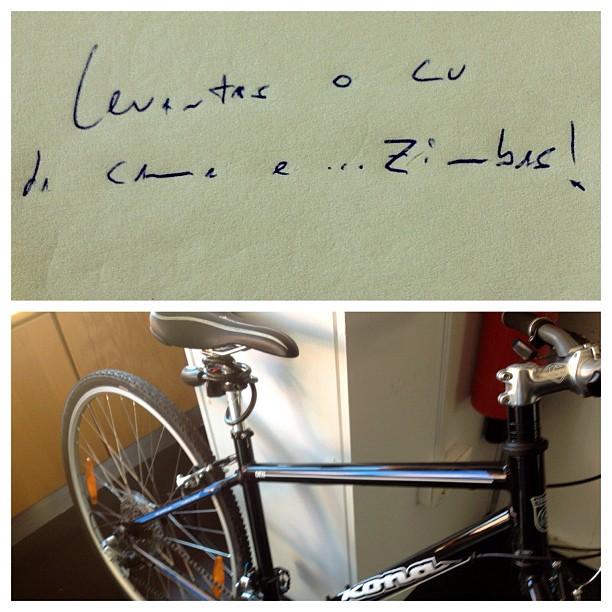 Levantas o cu
da cama e ... Zimbas!
KONA